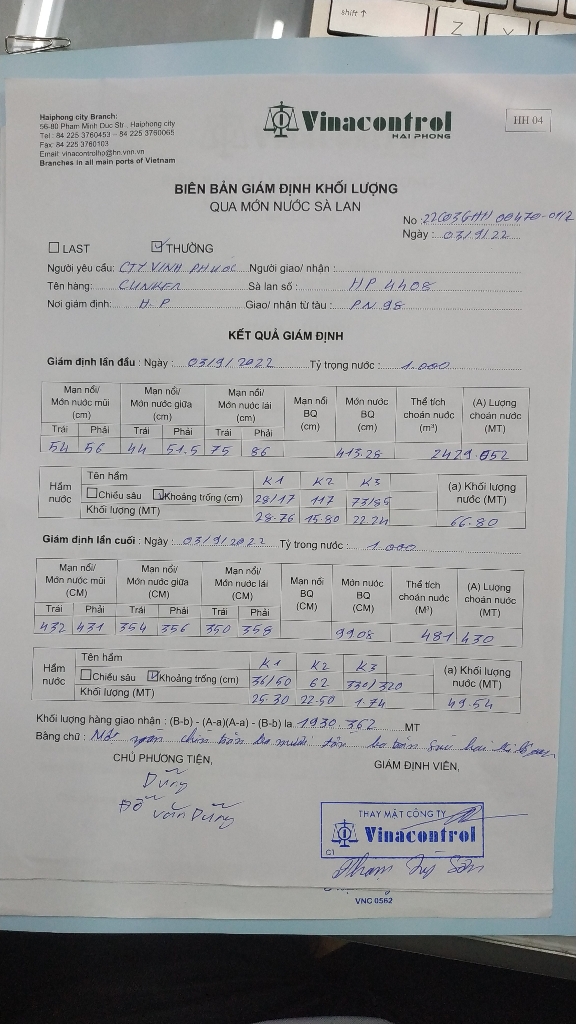 shift ↑
Z
Haiphong city Branch:
56-80 Pham Minh Duc Str., Haiphong city
Tel: 84 225 3760453 – 84 225 3760065
Fax: 84 225 3760103
Email: vinacontrolhp@hn.vnn.vn
Branches in all main ports of Vietnam
Vinacontrol
HAI PHONG
HH 04
BIÊN BẢN GIÁM ĐỊNH KHỐI LƯỢNG
QUA MỚN NƯỚC SÀ LAN
No 22G03GHH 00470-01/2
Ngày: 03/9/22
LAST THƯỜNG
Người yêu cầu: CTY VINH PHUOC Người giao/ nhận:
Tên hàng: CLINKER Sà lan số: HP 4408
Nơi giám định: H.P Giao/ nhận từ tàu: PN 98
KẾT QUẢ GIÁM ĐỊNH
Giám định lần đầu: Ngày: 03/9/2022 Tỷ trọng nước: 1.000
Mạn nổi/ Mớn nước mũi (cm) Mạn nổi/ Mớn nước giữa (cm) Mạn nổi/ Mớn nước lái (cm) Mạn nổi BQ (cm) Mớn nước BQ (cm) Thể tích choán nước (m³) (A) Lượng choán nước (MT)
Trái Phải Trái Phải Trái Phải
54 56 44 51.5 75 86 413.28 2429.052
Hầm nước Tên hầm K1 K2 K3 (a) Khối lượng nước (MT)
Chiều sâu Khoảng trống (cm) 28/17 117 73/85
Khối lượng (MT) 28.76 15.80 22.24 66.80
Giám định lần cuối: Ngày: 03/9/2022 Tỷ trọng nước: 1.000
Mạn nổi/ Mớn nước mũi (CM) Mạn nổi/ Mớn nước giữa (CM) Mạn nổi/ Mớn nước lái (CM) Mạn nổi BQ (CM) Mớn nước BQ (CM) Thể tích choán nước (M³) (A) Lượng choán nước (MT)
Trái Phải Trái Phải Trái Phải
432 431 354 356 350 358 9908 481 430
Hầm nước Tên hầm K1 K2 K3 (a) Khối lượng nước (MT)
Chiều sâu Khoảng trống (cm) 36/60 62 330/320
Khối lượng (MT) 25.30 22.50 1.74 49.54
Khối lượng hàng giao nhận: (B-b) - (A-a)(A-a) - (B-b) la 1930.362 MT
Bằng chữ: Một chín trăm ba mươi tấn ba trăm sáu hai
CHỦ PHƯƠNG TIỆN, GIÁM ĐỊNH VIÊN,
Dũng
Đỗ Văn Dũng
THAY MẶT CÔNG TY
Vinacontrol
C1
VNC 0562